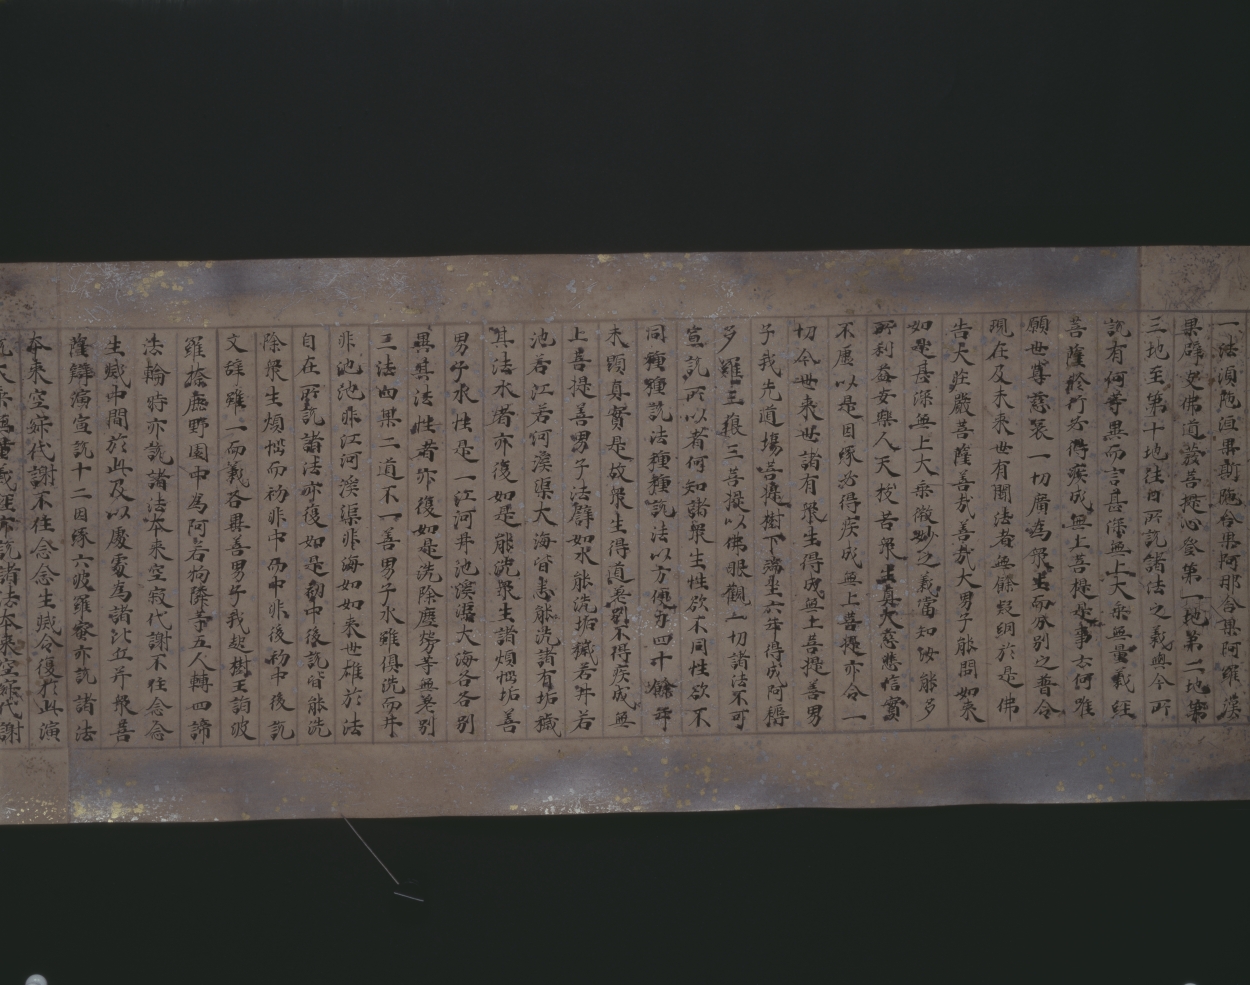 一法須陀洹果斯陀含果阿那含果阿羅漢
果辟支佛道發菩提心登第一地第二地第
三地至第十地往日所說諸法之義與今所
說有何等異而言甚深無上大乘無量義經
菩薩修行必得疾成無上菩提是事云何唯
願世尊慈哀一切廣為眾生而分別之普令
現在及未來世有聞法者無餘疑網於是佛
告大莊嚴菩薩善哉善哉大男子能問如來
如是甚深無上大乘微妙之義當知汝能多
所利益安樂人天拔苦眾生真大慈悲信實
不虛以是因緣必得疾成無上菩提亦令一
切今世來世諸有眾生得成無上菩提善男
子我先道場菩提樹下端坐六年得成阿耨
多羅三藐三菩提以佛眼觀一切諸法不可
宣說所以者何知諸眾生性欲不同性欲不
同種種說法種種說法以方便力四十餘年
未顯真實是故眾生得道差別不得疾成無
上菩提善男子法譬如水能洗垢穢若井若
池若江若河溪渠大海皆悉能洗諸有垢穢
其法水者亦復如是能洗眾生諸煩惱垢善
男子水性是一江河井池溪渠大海各各別
異其法性者亦復如是洗除塵勞等無差別
三法四果二道不一善男子水雖俱洗而井
非池池非江河溪渠非海如如來世雄於法
自在所說諸法亦復如是初中後說皆能洗
除眾生煩惱而初非中而中非後初中後說
文辭雖一而義各異善男子我起樹王詣波
羅捺鹿野園中為阿若拘隣等五人轉四諦
法輪時亦說諸法本來空寂代謝不住念念
生滅中間於此及以處處為諸比丘并眾菩
薩辯演宣說十二因緣六波羅蜜亦說諸法
本來空寂代謝不住念念生滅今復於此演
說大乘無量義經亦說諸法本來空寂代謝